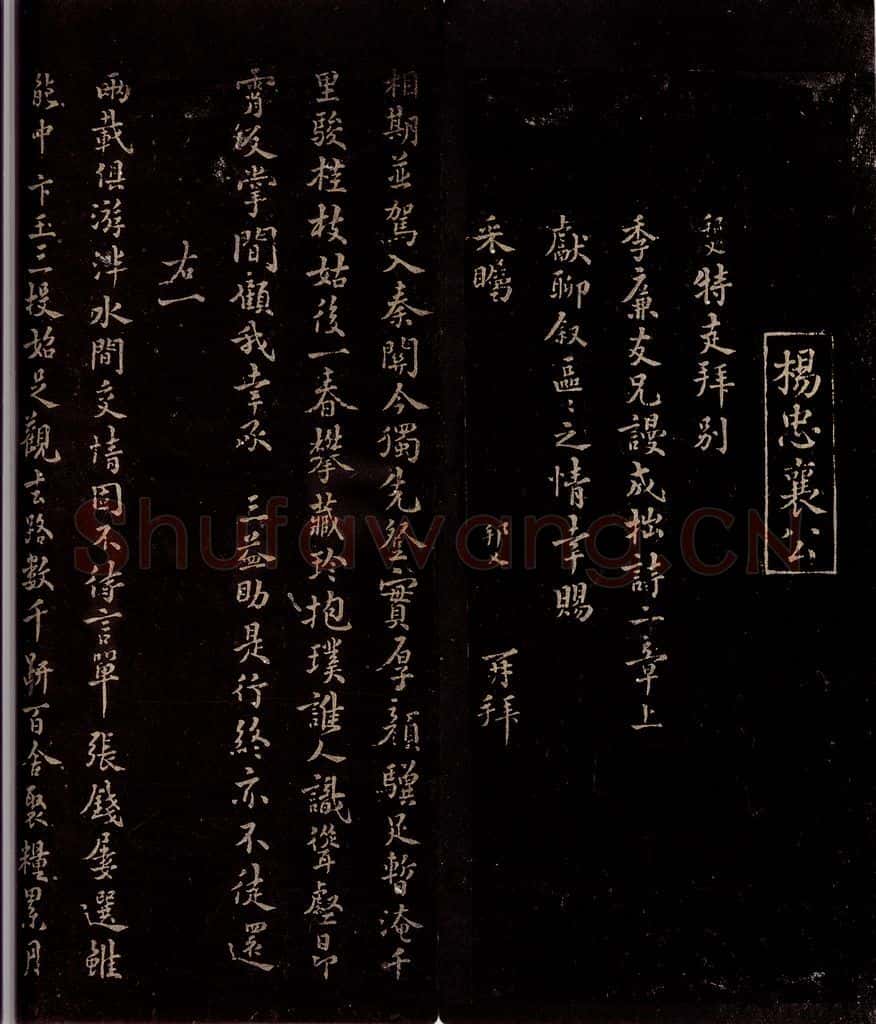 楊忠襄公
邦乂特走拜別
季廉友兄謾成拙詩二章上
獻聊叙區〻之情幸賜
采矚 邦乂 再拜
相期並駕入秦關今獨先登實厚顏驥足暫淹千
里駿桂枝姑後一春攀藏珍抱璞誰人識聳壑昂
霄反掌間顧我幸承三益助是行終亦不徒還
右一
兩載俱游泮水間交情固不待言單張錢屢選雖
能中卞玉三投始足觀去路數千跰百舍聚糧累月
Shufawang.CN